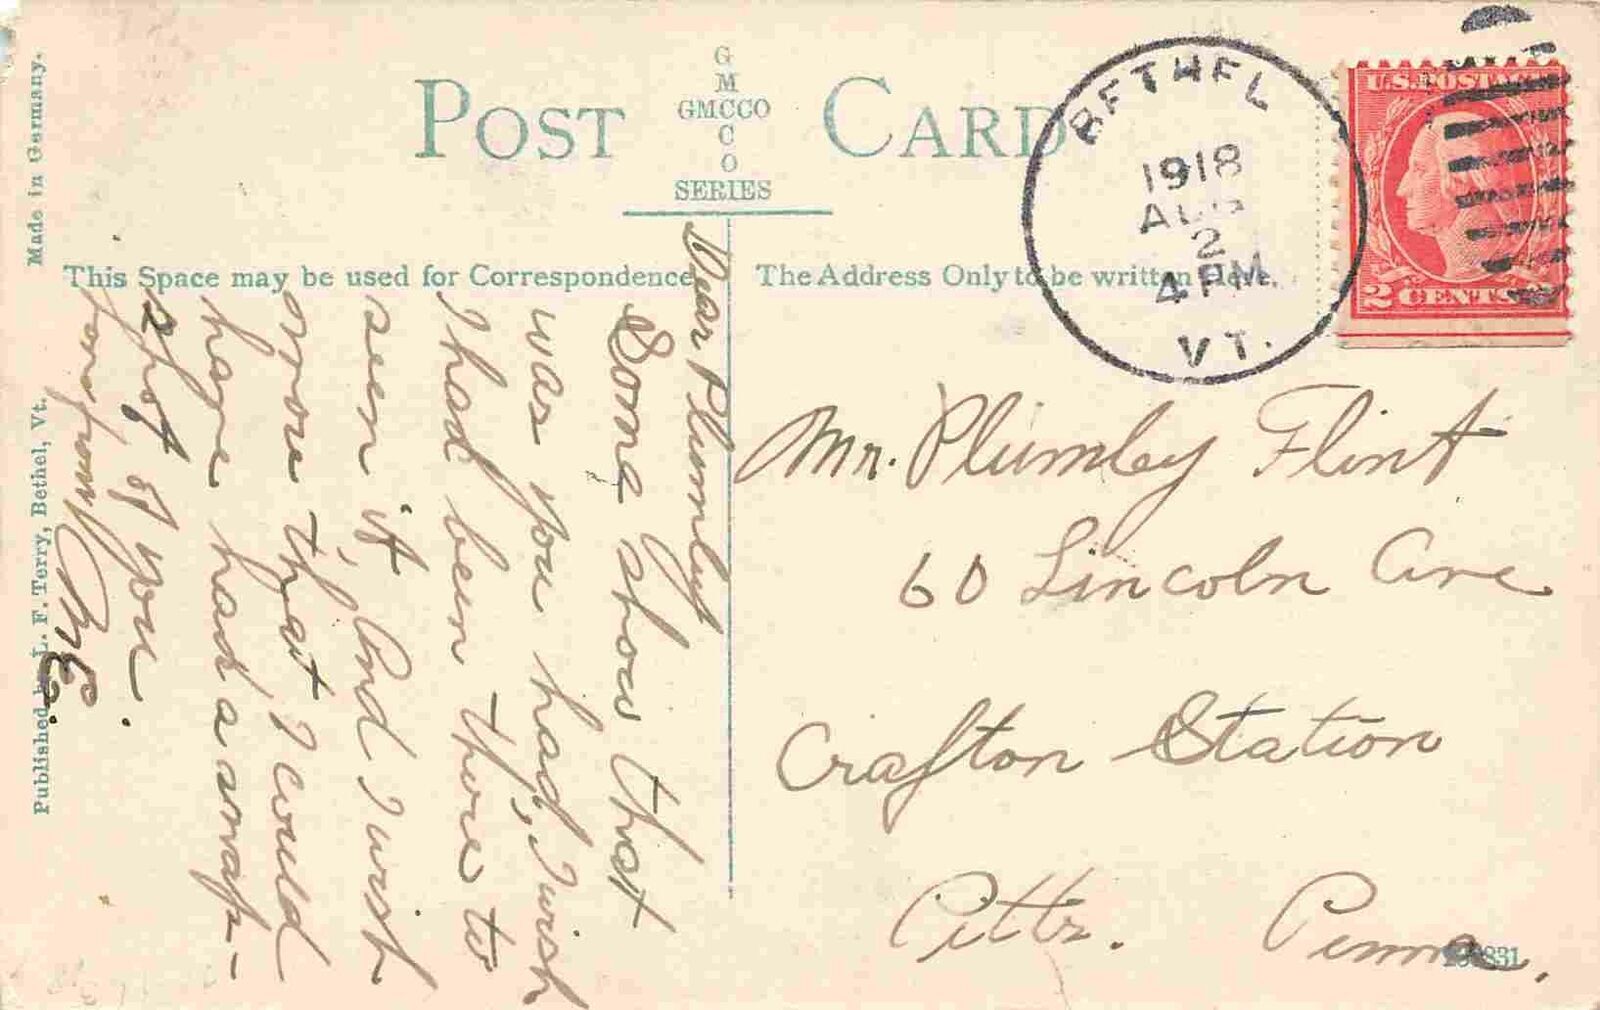 Made in Germany.
Published by L. F. Terry, Bethel, Vt.
POST CARD
G
M
GMCCO
C
C
O
SERIES
This Space may be used for Correspondence
The Address Only to be written Here.
BETHEL
1918
AUG
2
4 PM
VT.
U.S. POSTAGE
2 CENTS 2
Dear Plumley
Some show that
was you had, I wish
I had been there to
seen it, And I wish
more that I could
have had a snap-
shot of you.
Love from
Mr. Plumley Flint
60 Lincoln Ave
Crafton Station
Pitts. Penna,